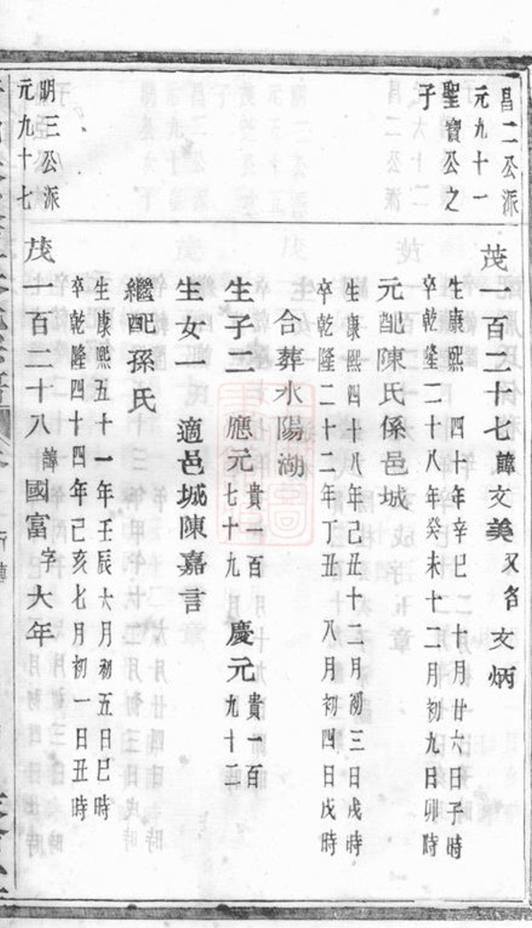 昌二公派
元九十一
聖寶公之
子
茂一百二十七諱文美又名文炳
生康熙四十年辛巳十月廿六日子時
卒乾隆二十八年癸未十二月初九日卯時
元配陳氏係邑城
生康熙四十八年己丑十二月初三日戌時
卒乾隆二十二年丁丑八月初四日戌時
合葬水陽湖
生子二應元貴一百七十九慶元貴一百九十二
生女一適邑城陳嘉言
繼配孫氏
生康熙五十一年壬辰六月初五日巳時
卒乾隆四十四年己亥七月初一日丑時
明三公派
元九十七
茂一百二十八諱國富字大年